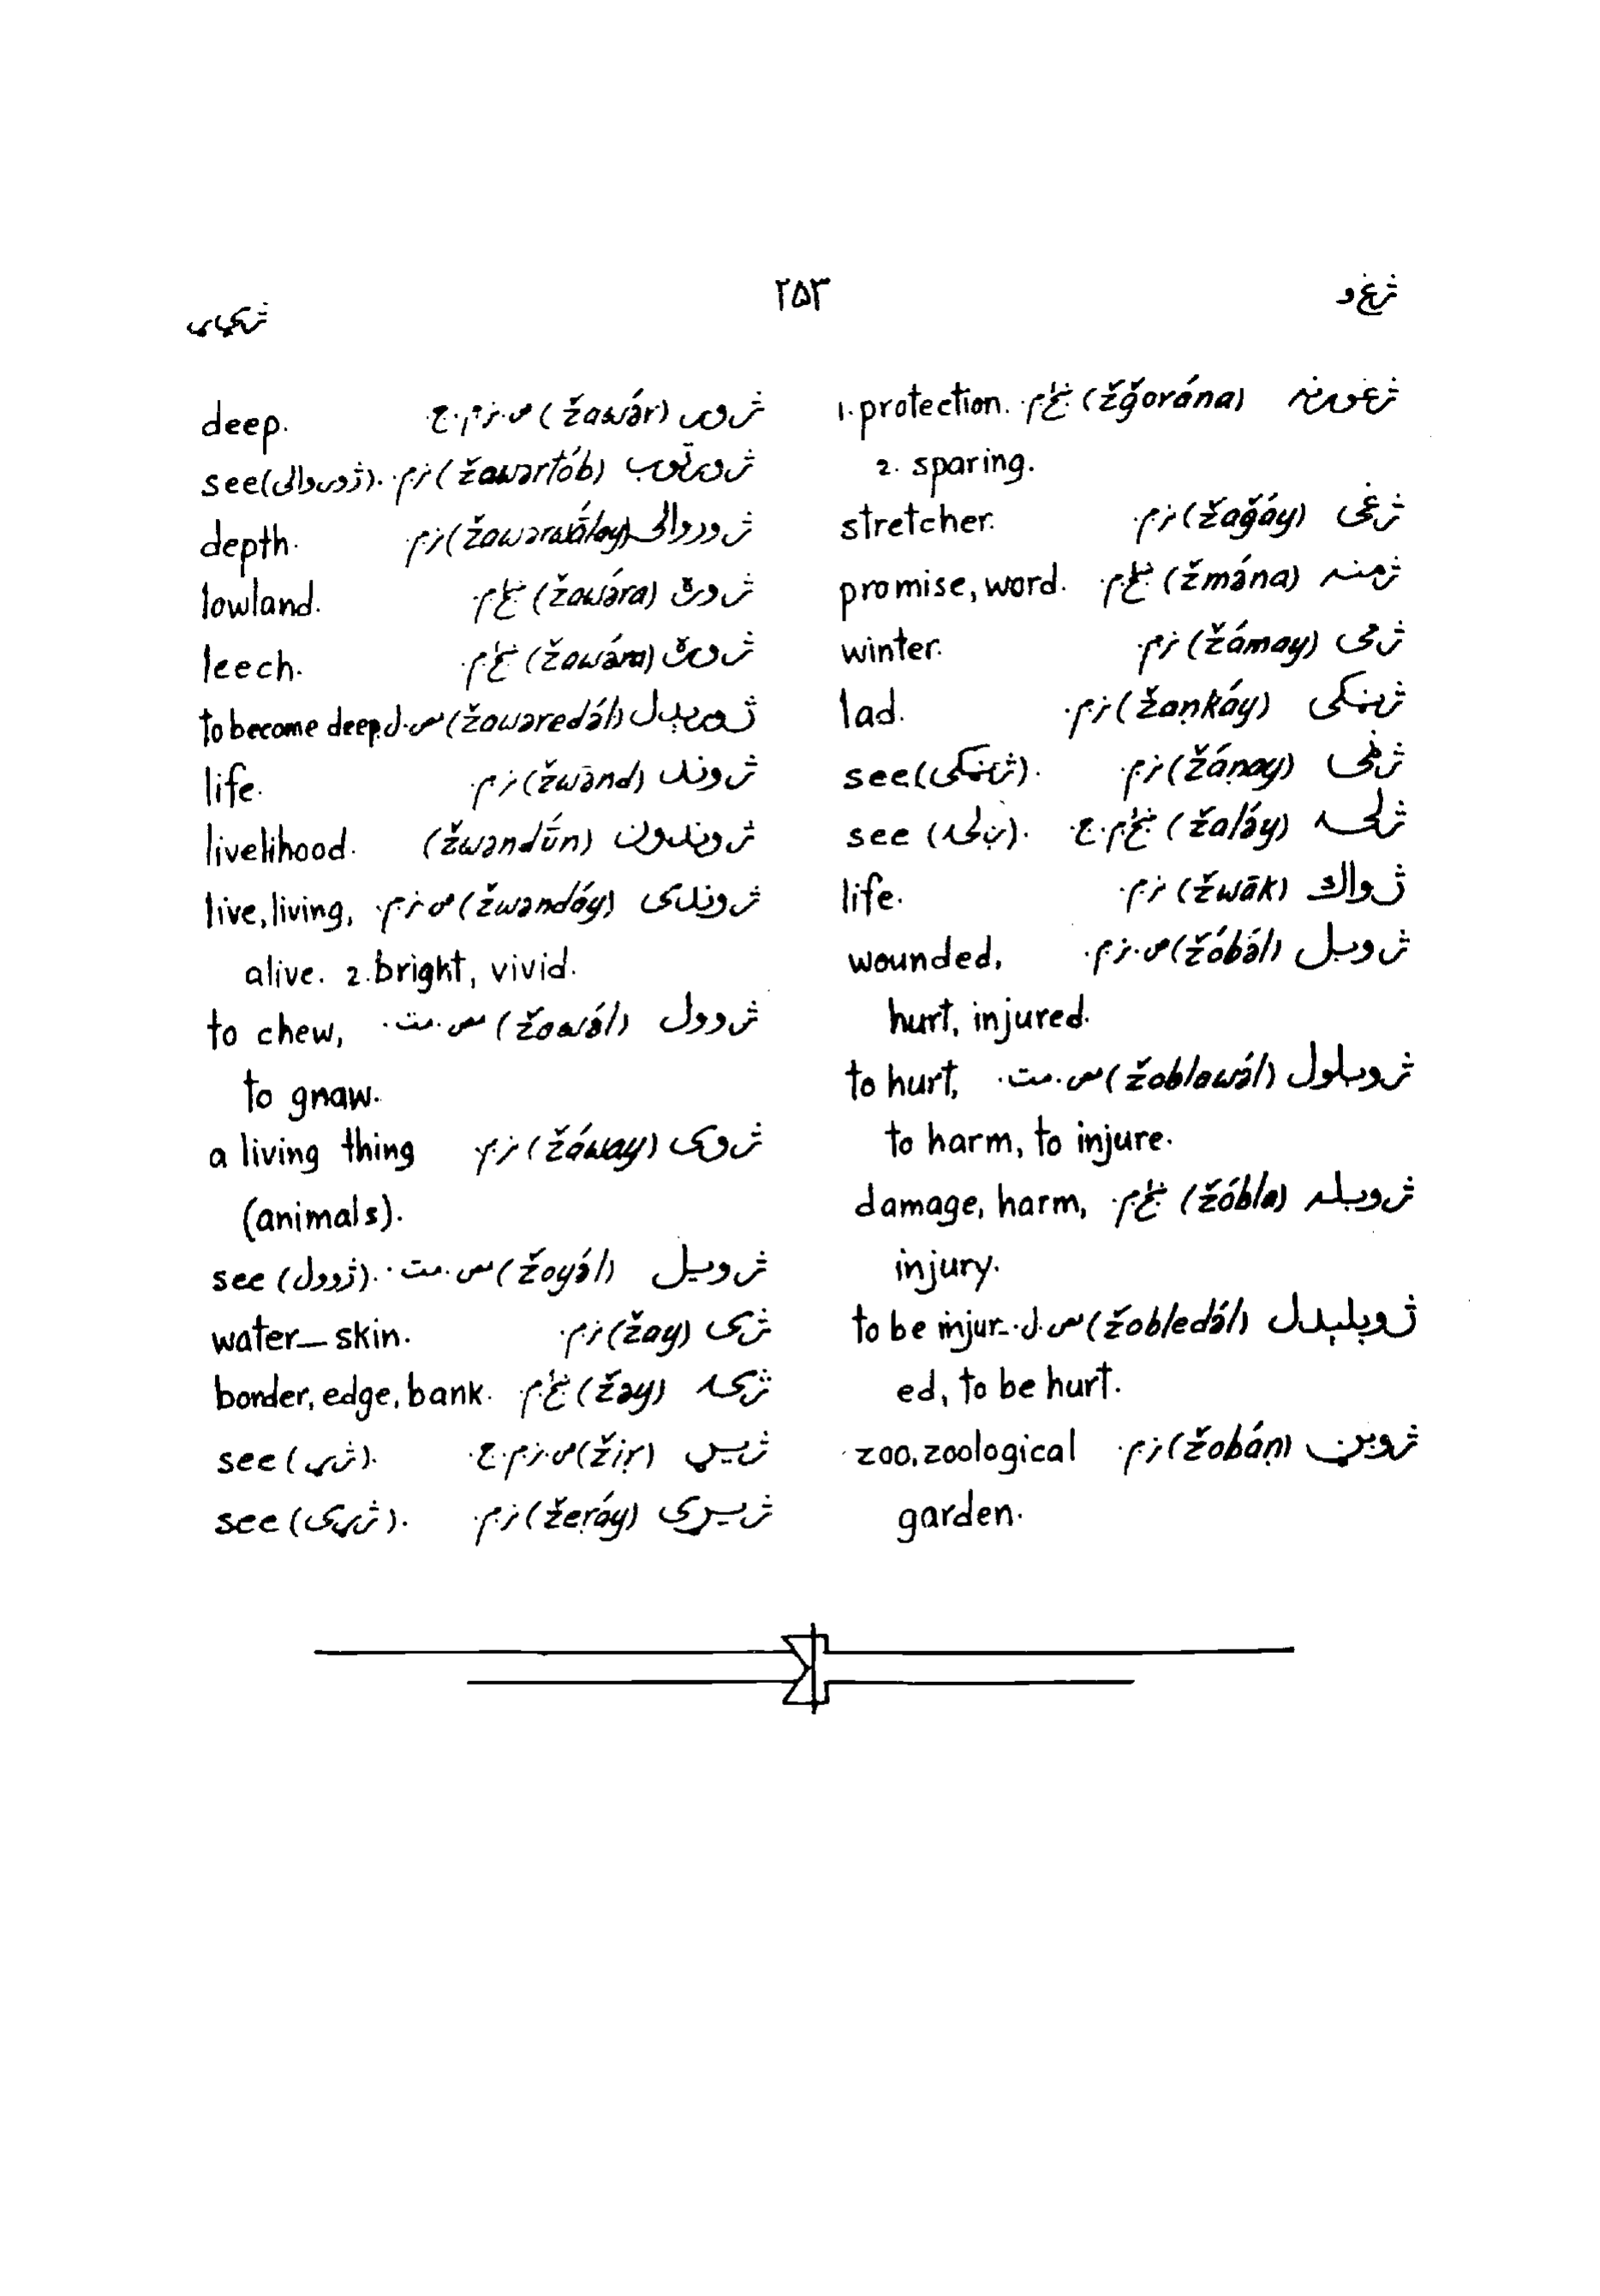 ژغ و
۲۵۳
ژغورنه (žǧorána) ښځ.م. 1. protection.
2. sparing.
ژغی (žaǧáy) نر.م. stretcher.
ژمنه (žmə́na) ښځ.م. promise, word.
ژمی (žámay) نر.م. winter.
ژڼکی (žaṇkáy) نر.م. lad.
ژڼی (žáṇay) نر.م. see (ژڼکی).
(žalə́y) ښځ.م.ج. see
ژواک (žwāk) نر.م. life.
ژوبل (žóbə́l) ص.نر.م. wounded,
hurt, injured.
ژوبلول (žoblawə́l) مص.مت. to hurt,
to harm, to injure.
ژوبله (žóbla) ښځ.م. damage, harm,
injury.
ژوبلېدل (žobledə́l) مص.ل. to be injur-
ed, to be hurt.
ژوبڼ (žobáṇ) نر.م. zoo, zoological
garden.
ژور (žawə́r) ص.نر.م.ج. deep.
ژورتوب (žawərtób) نر.م. see (ژوروالی).
ژوروالی (žawərwā́lay) نر.م. depth.
ژوره (žawə́ra) ښځ.م. lowland.
ژوره (žawə́ra) ښځ.م. leech.
ژورېدل (žawəredə́l) مص.ل. to become deep.
ژوند (žwənd) نر.م. life.
ژوندون (žwəndū́n) livelihood.
ژوندی (žwəndáy) ص.نر.م. live, living,
alive. 2. bright, vivid.
ژوول (žowə́l) مص.مت. to chew,
to gnaw.
ژوی (žáway) نر.م. a living thing
(animals).
ژویل (žoyə́l) مص.مت. see (ژوول).
ژی (žay) نر.م. water-skin.
ژۍ (žəy) ښځ.م. border, edge, bank.
ژیړ (žiṛ) ص.نر.م.ج. see (ژړ).
ژېړی (žeṛáy) نر.م. see (ژړی).